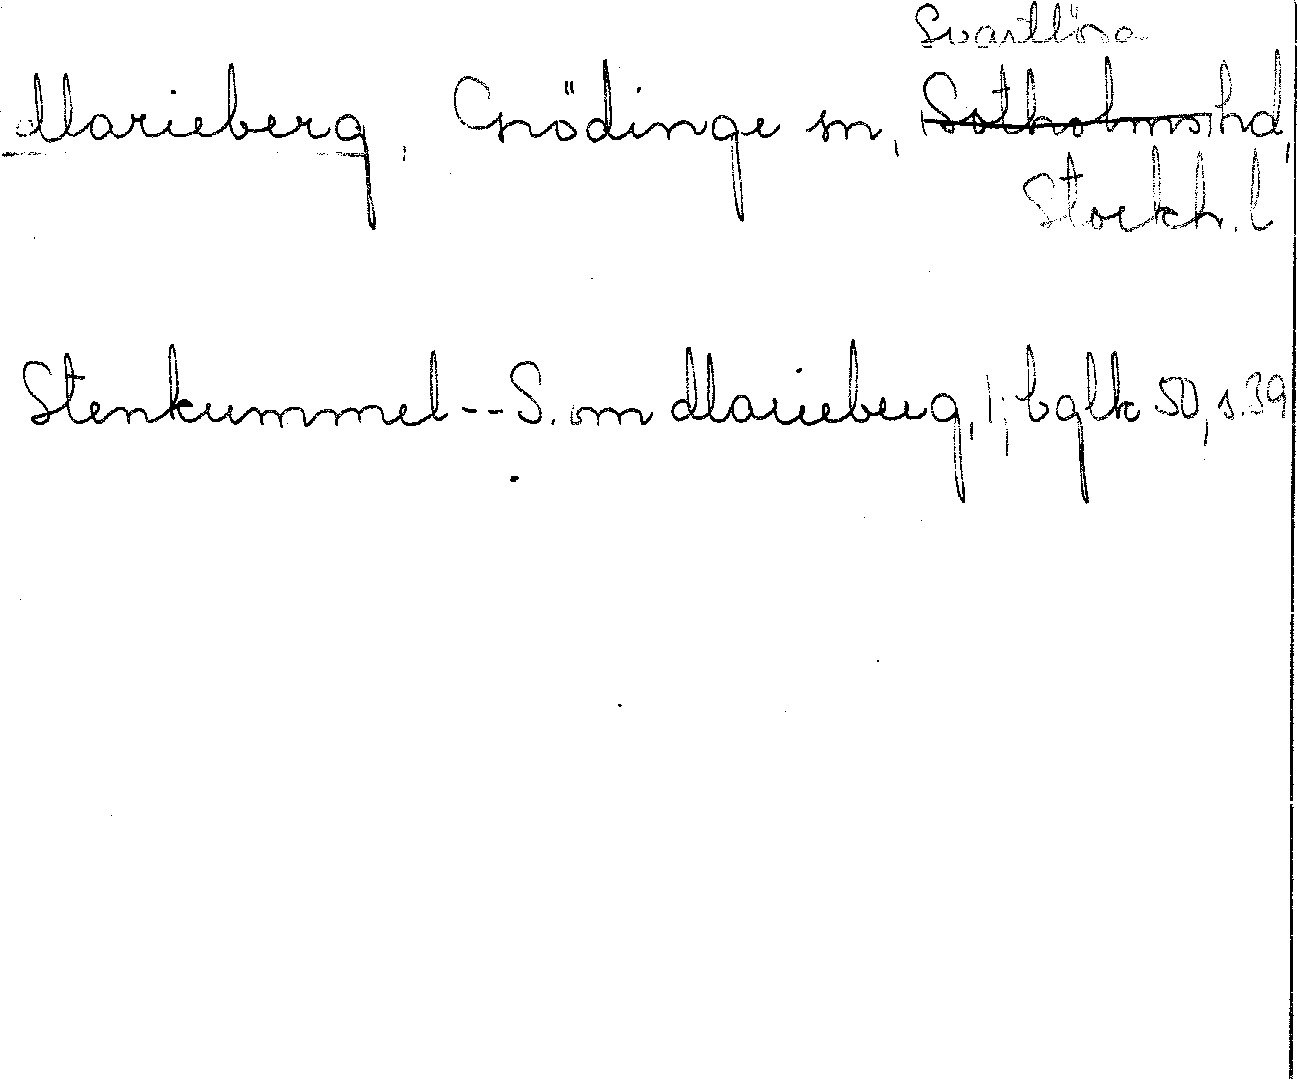 Svartlösa
Marieberg, Grödinge sn, Sotholms hd,
Stockh. l
Stenkummel -- S. om Marieberg, 1; bglk 50, s. 39